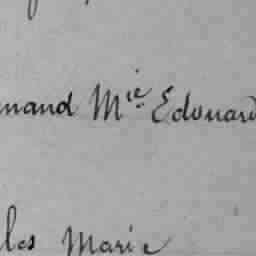 nand Mie Edouard
les Marie